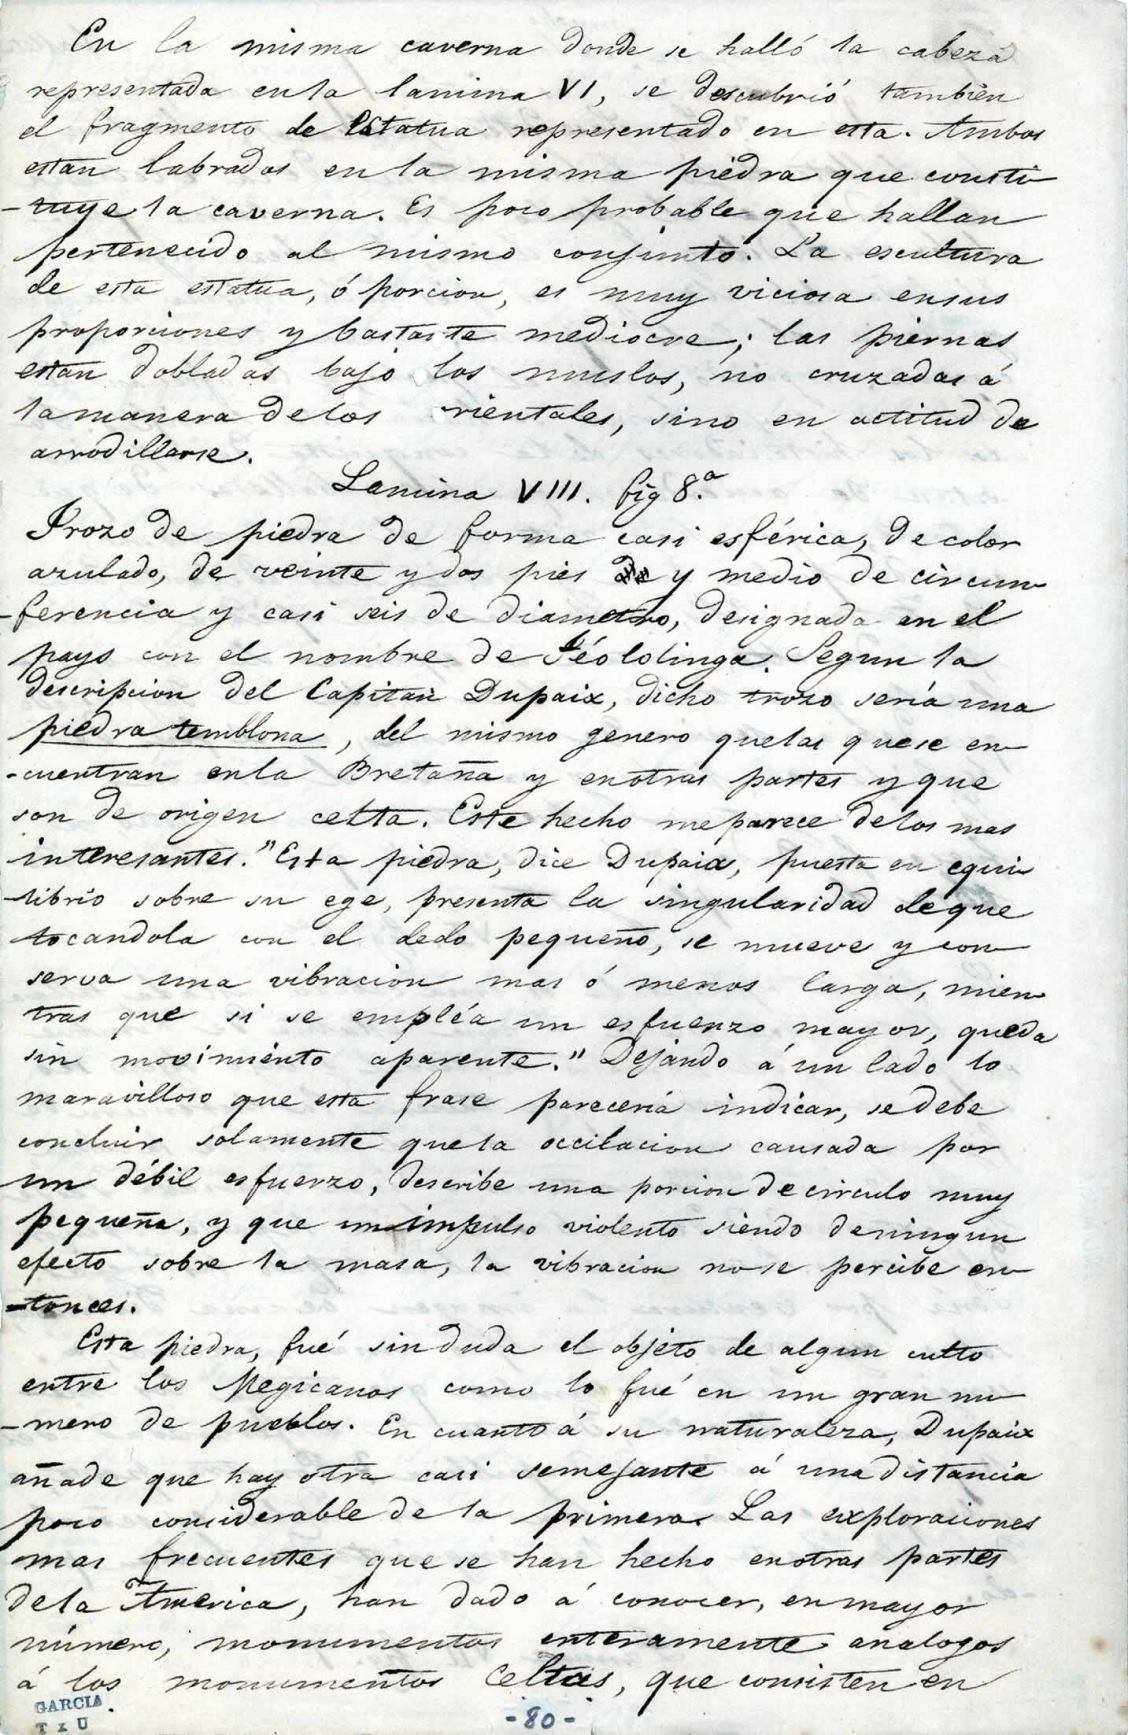 En la misma caverna donde se halló la cabeza
representada en la lamina VI, se descubrió tambien
el fragmento de Estatua representado en esta. Ambos
estan labrados en la misma piedra que consti
-tuye la caverna. Es poco probable que hallan
pertenecido al mismo conjunto. La escultura
de esta estatua, ó porcion, es muy viciosa en sus
proporciones y bastante mediocre; las piernas
estan dobladas bajo los muslos, no cruzadas á
la manera de los rientales, sino en actitud de
arrodillarse.
Lamina VIII. fig 8.a
Trozo de piedra de forma casi esférica, de color
azulado, de veinte y dos pies y medio de circun
-ferencia y casi seis de diametro, designada en el
pays con el nombre de Téololinga. Segun la
descripcion del Capitan Dupaix, dicho trozo sería una
piedra temblona, del mismo genero que las que se en
-cuentran en la Bretaña y en otras partes y que
son de origen celta. Este hecho me parece de los mas
interesantes. "Esta piedra, dice Dupaix, puesta en equi
-librio sobre su ege, presenta la singularidad de que
tocandola con el dedo pequeño, se mueve y con
serva una vibracion mas ó menos larga, mien
tras que si se empléa un esfuerzo mayor, queda
sin movimiento aparente." Dejando á un lado lo
maravilloso que esta frase pareceria indicar, se debe
concluir solamente que la occilacion causada por
un débil esfuerzo, describe una porcion de circulo muy
pequeña, y que un impulso violento siendo de ningun
efecto sobre la masa, la vibracion no se percibe en
-tonces.
Esta piedra, fué sin duda el objeto de algun culto
entre los Megicanos como lo fué en un gran nu
-mero de pueblos. En cuanto á su naturaleza, Dupaix
añade que hay otra casi semejante á una distancia
poco considerable de la primera. Las exploraciones
mas frecuentes que se han hecho en otras partes
de la America, han dado á conocer, en mayor
número, monumentos enteramente analogos
á los monumentos Celtas, que consisten en
GARCIA
-80-